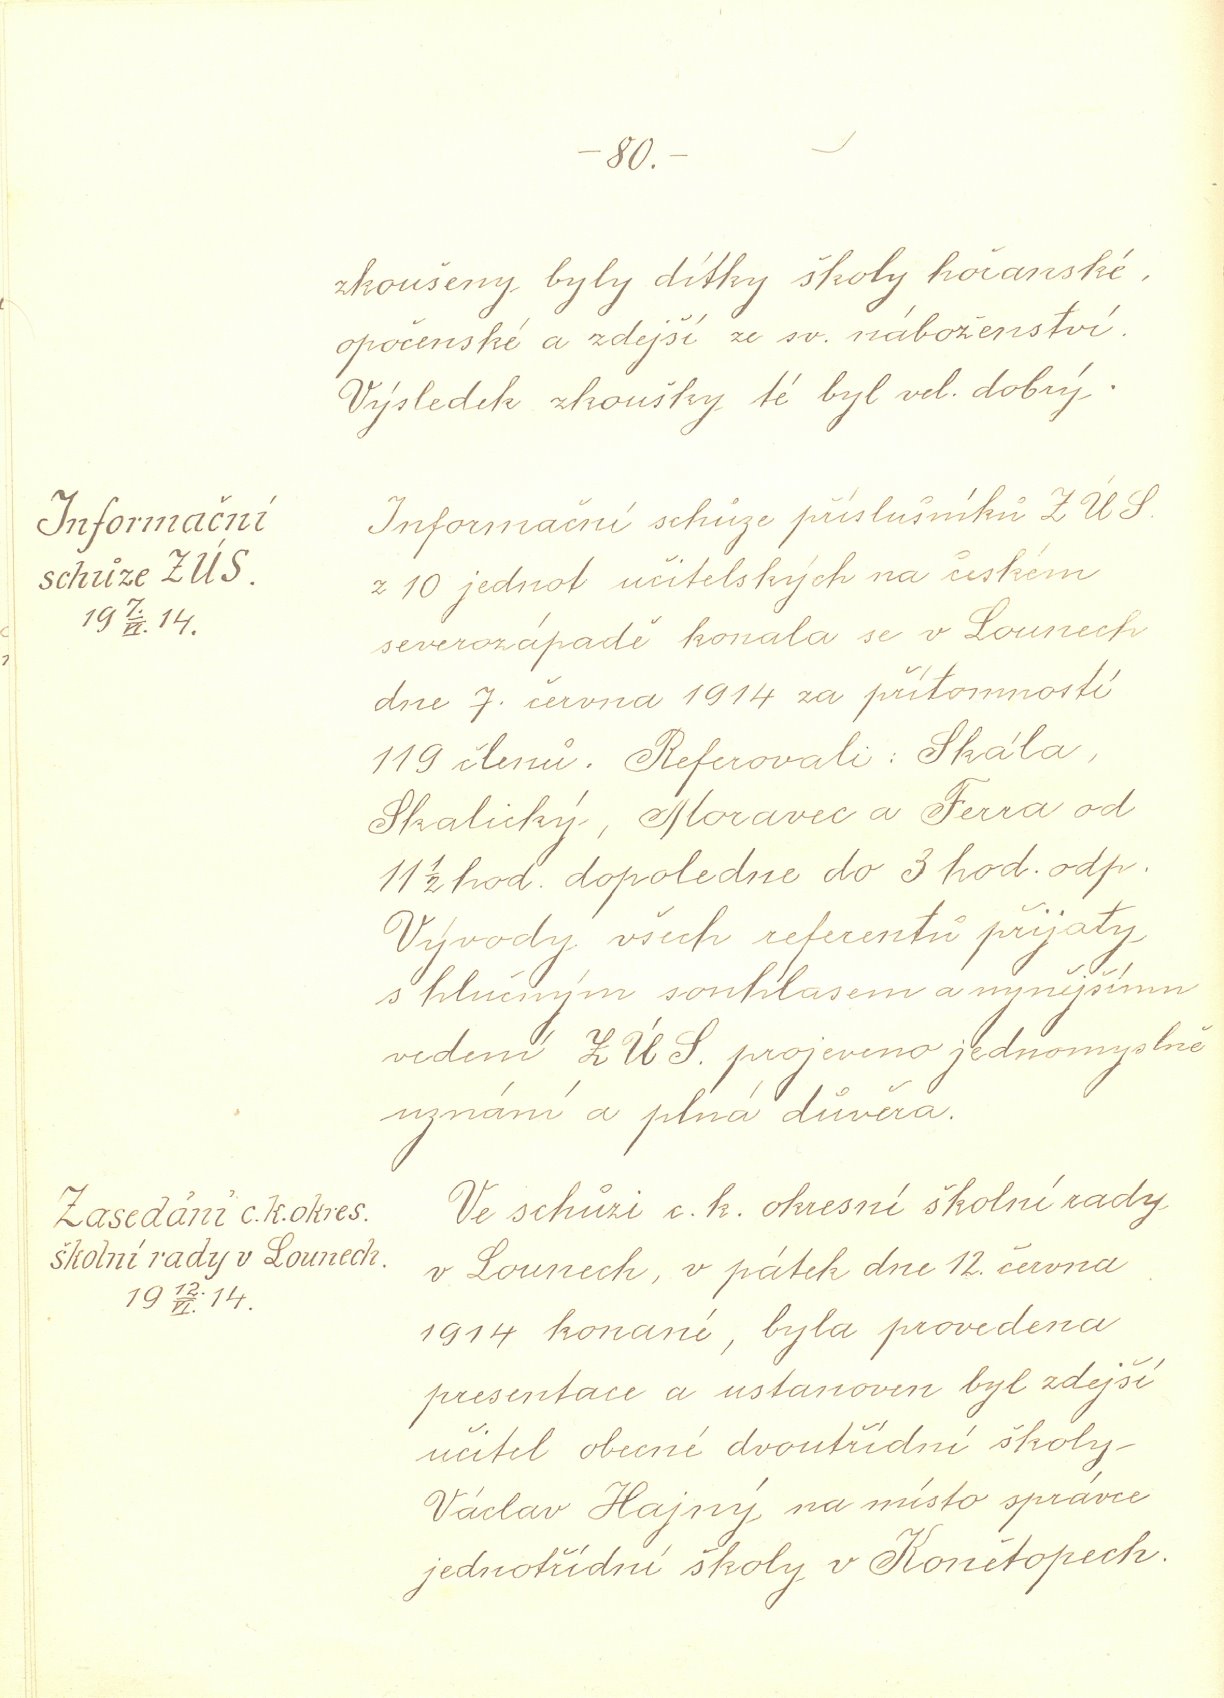 -80.-
zkoušeny byly dítky školy hořanské,
opočenské a zdejší ze sv. náboženství.
Výsledek zkoušky té byl vel. dobrý.
Informační
schůze ZÚS.
19 7./VI. 14.
Informační schůze příslušníků Z Ú S.
z 10 jednot učitelských na českém
severozápadě konala se v Lounech
dne 7. června 1914 za přítomnosti
119 členů. Referovali: Skála,
Skalický, Moravec a Ferra od
11 1/2 hod. dopoledne do 3 hod. odp.
Vývody všech referentů přijaty
s hlučným souhlasem a nynějšímu
vedení Z Ú S. projeveno jednomyslné
uznání a plná důvěra.
Zasedání c. k. okres.
školní rady v Lounech.
19 12./VI. 14.
Ve schůzi c. k. okresní školní rady
v Lounech, v pátek dne 12. června
1914 konané, byla provedena
presentace a ustanoven byl zdejší
učitel obecné dvoutřídní školy
Václav Hajný na místo správce
jednotřídní školy v Konětopech.